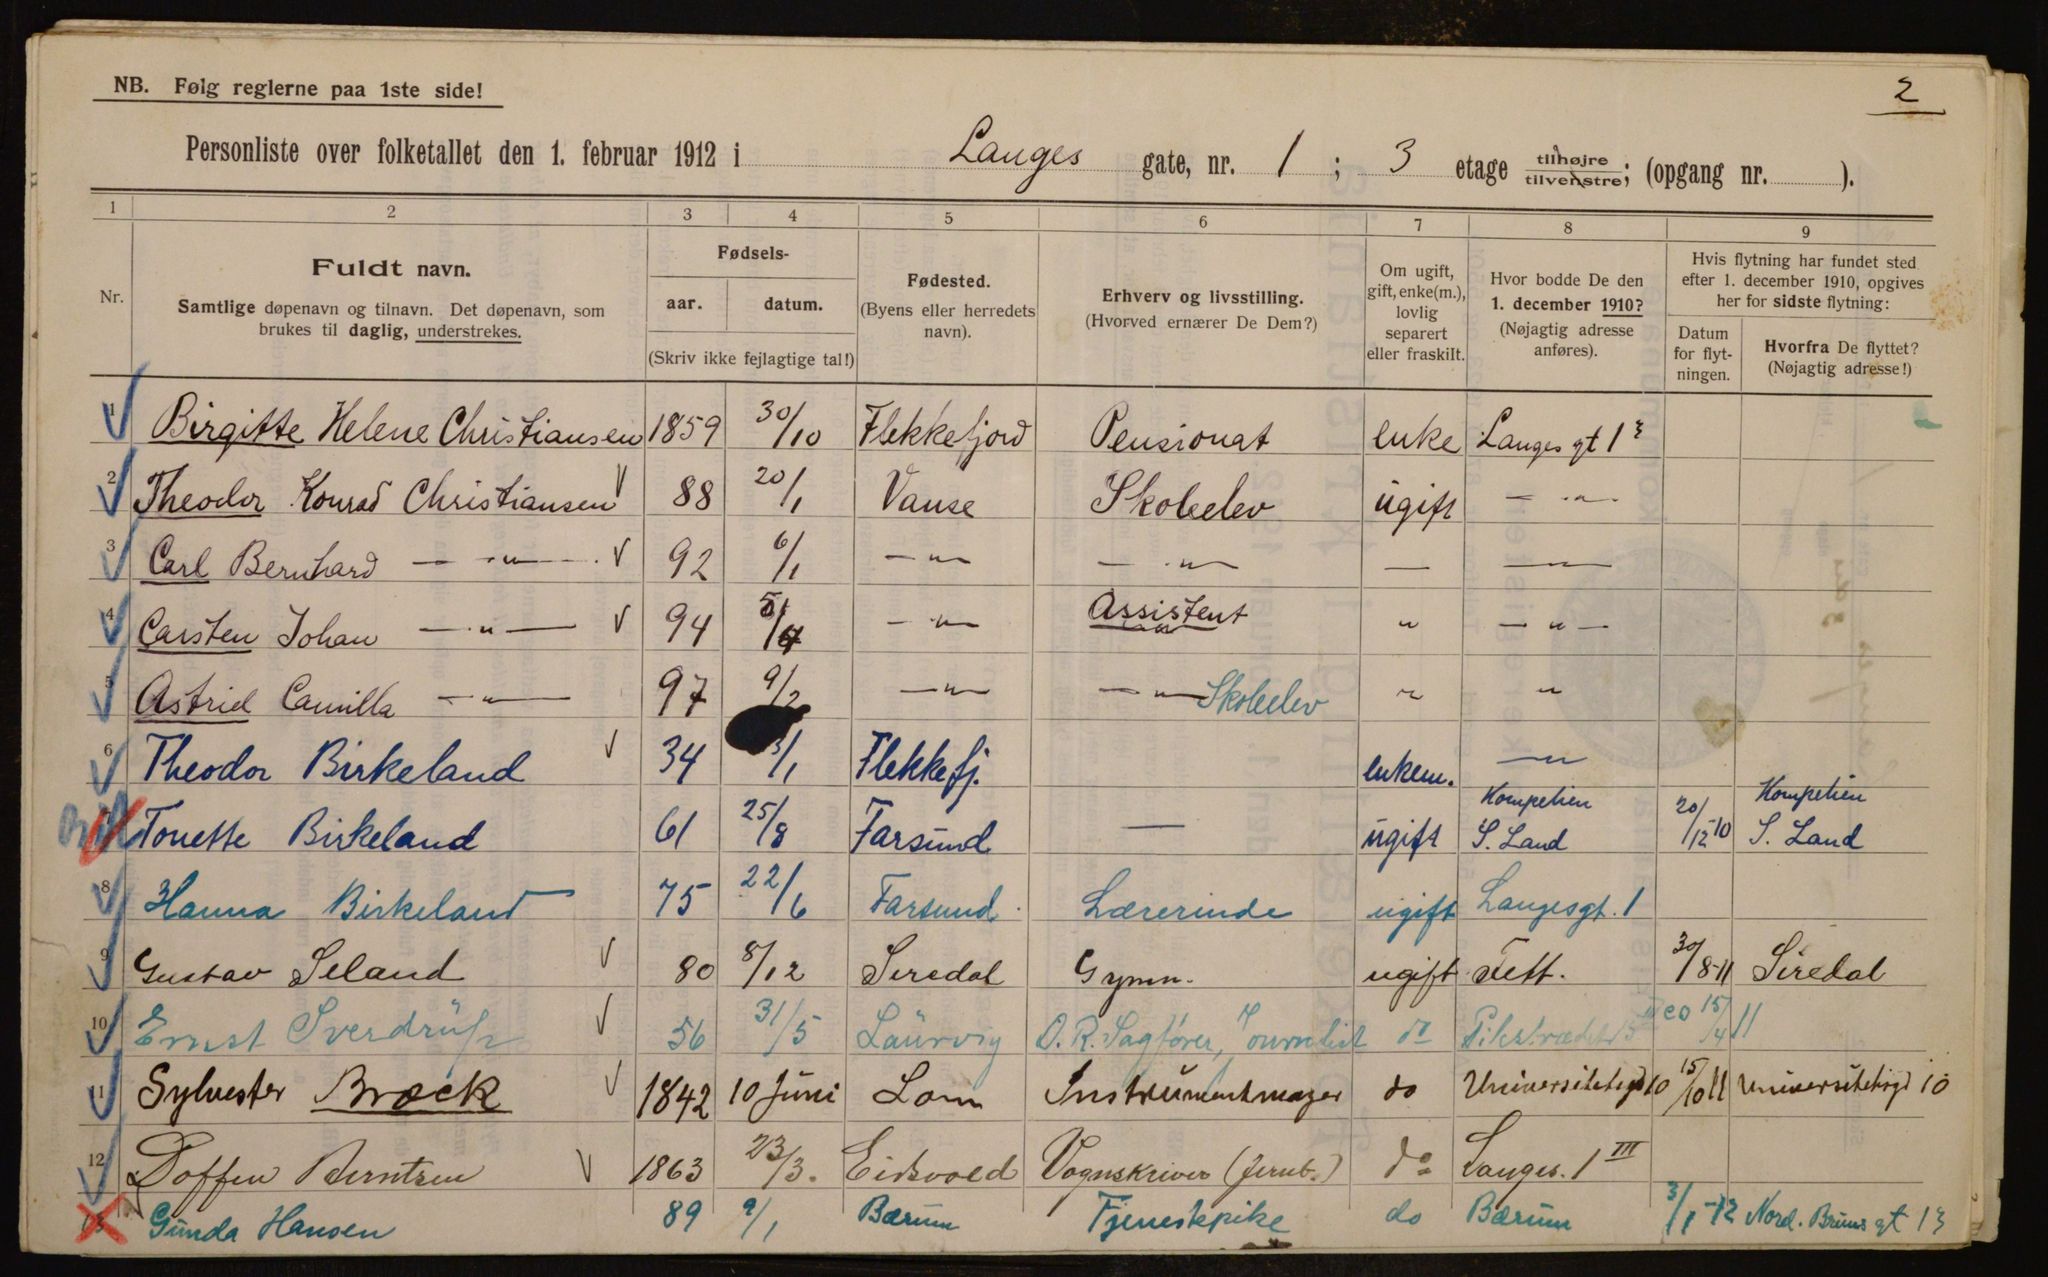 2
NB. Følg reglerne paa 1ste side!
Personliste over folketallet den 1. februar 1912 i Langes gate, nr. 1 ; 3 etage tilhøjre tilvenstre; (opgang nr. ).
1 2 3 4 5 6 7 8 9
Nr. Fuldt navn. Samtlige døpenavn og tilnavn. Det døpenavn, som brukes til daglig, understrekes. Fødsels- aar. datum. (Skriv ikke fejlagtige tal!) Fødested. (Byens eller herredets navn). Erhverv og livsstilling. (Hvorved ernærer De Dem?) Om ugift, gift, enke(m.), lovlig separert eller fraskilt. Hvor bodde De den 1. december 1910? (Nøjagtig adresse anføres). Hvis flytning har fundet sted efter 1. december 1910, opgives her for sidste flytning: Datum for flyt-ningen. Hvorfra De flyttet? (Nøjagtig adresse!)
1 Birgitte Helene Christiansen 1859 30/10 Flekkefjord Pensionat enke Langes gt 1 3
2 Theodor Konrad Christiansen V 88 20/1 Vanse Skoleelev ugift — " —
3 Carl Bernhard — " — V 92 6/1 — " — — " — — —
4 Carsten Johan — " — V 94 5/4 — " — Assistent " — " —
5 Astrid Camilla — " — 97 9/2 — " — — " — Skoleelev " "
6 Theodor Birkeland V 34 3/1 Flekkefj. enkem. — " —
7 Tonette Birkeland 61 25/8 Farsund — ugift S. Land 20/12-10 S. Land
8 Hanna Birkeland 75 22/6 Farsund. Lærerinde ugift Langesgt. 1
9 Gustav Seland V 80 8/12 Siredal Gymn. ugift Tett. 30/8-11 Siredal
10 Ernst Sverdrup V 56 31/5 Laurvig O.R. Sagfører, Journalist do Pilestrædet 15/4 11
11 Sylvester Brock V 1842 10 Juni Lom Instrumentmager do Universitetsgd 10 15/10 11 Universitetsgd 10
12 Doffen Berntsen V 1863 23/3. Eidsvold Vognskriver (Jernb.) do Langes. 1 III
13 Gunda Hansen 89 9/1 Bærum Tjenestepike do Bærum 3/1-12 Nord. Bruns gt 13